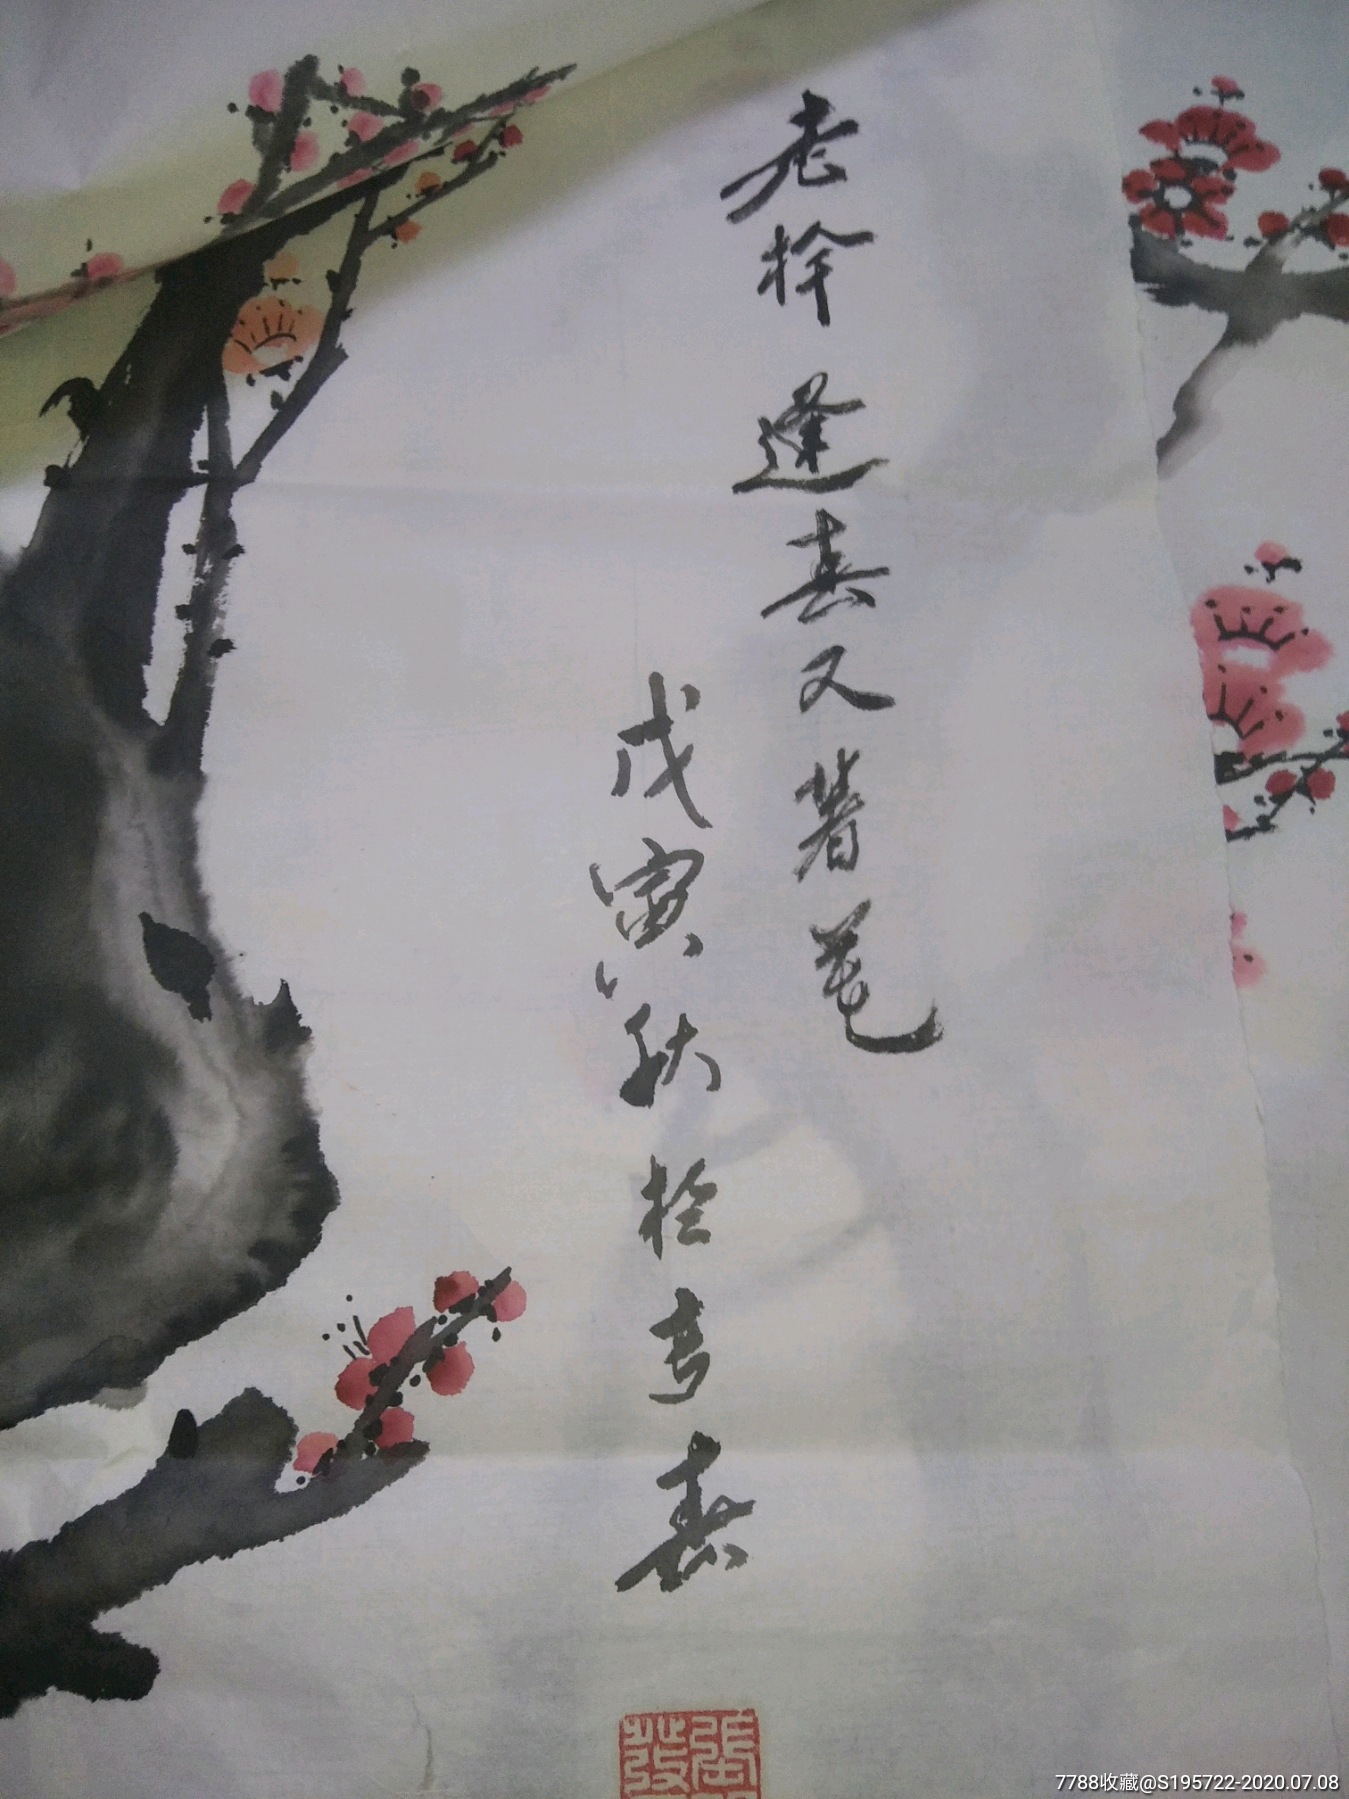 老逢春又著花
戊寅秋於長春
7788收藏@S195722-2020.07.08